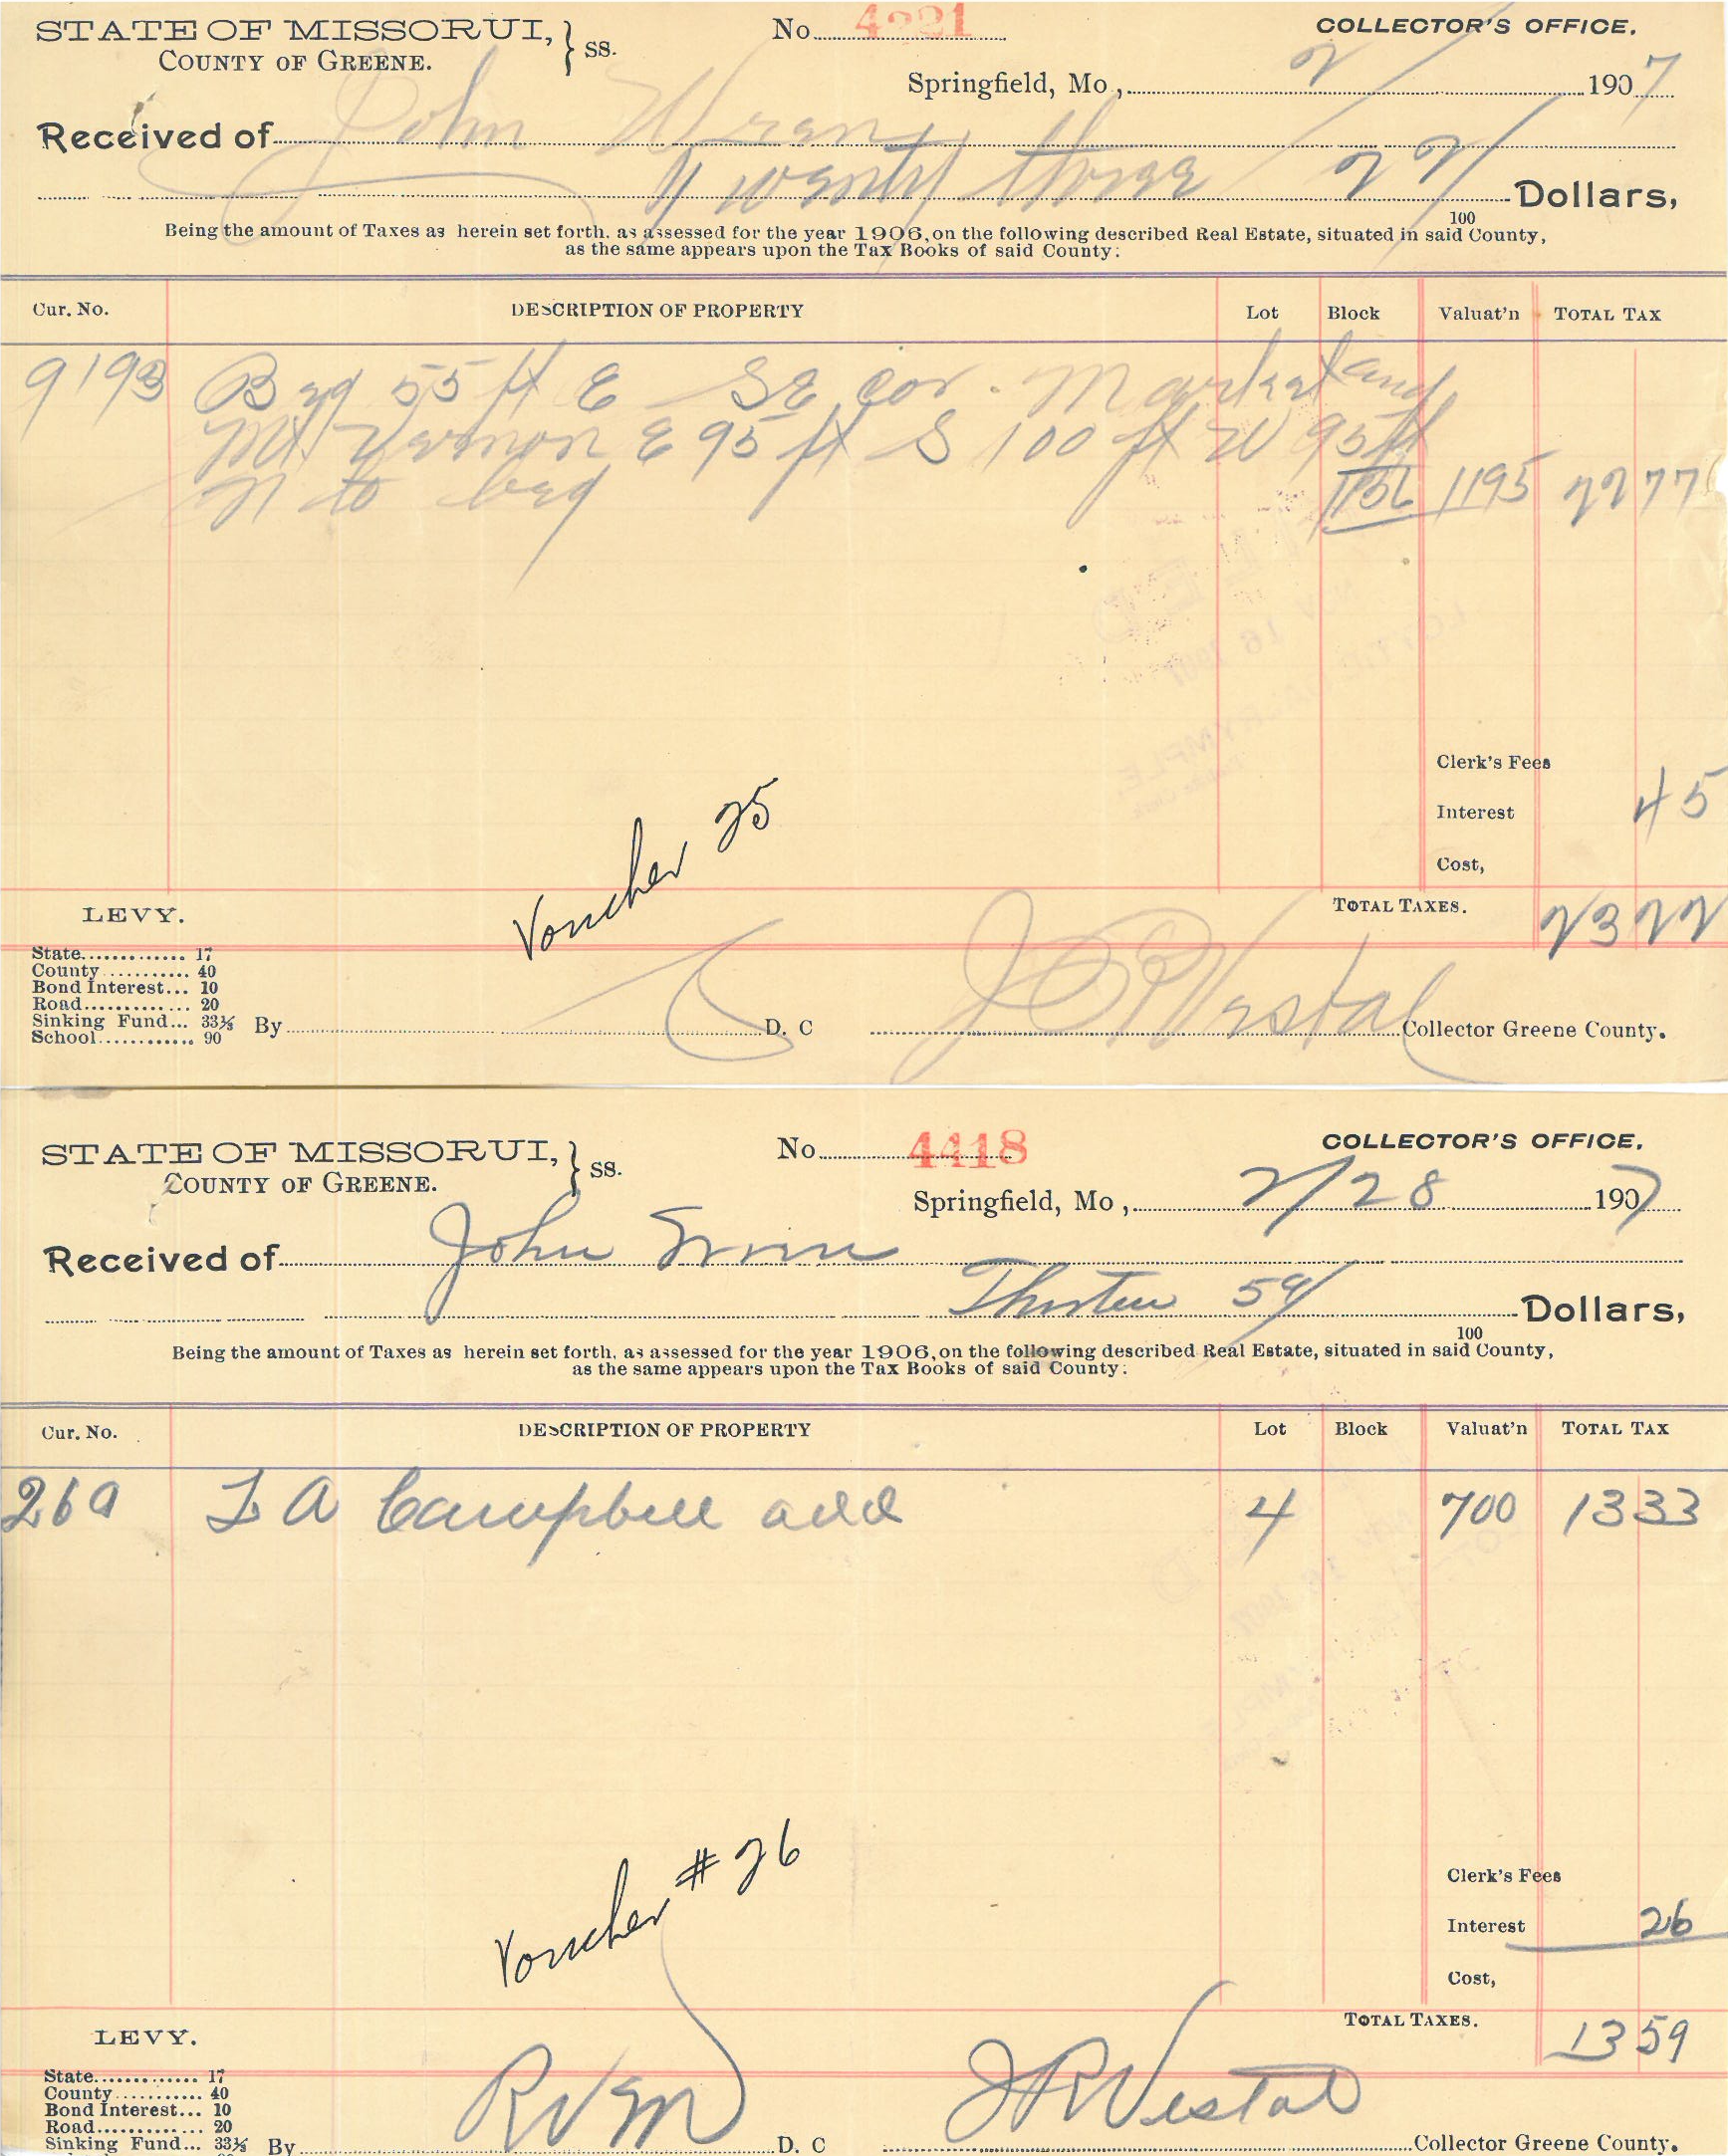 STATE OF MISSORUI, } SS.
COUNTY OF GREENE.
No. 4221
COLLECTOR'S OFFICE.
Springfield, Mo., 2/ 1907
Received of John
Twenty three 22/100 Dollars,
Being the amount of Taxes as herein set forth, as assessed for the year 1906, on the following described Real Estate, situated in said County,
as the same appears upon the Tax Books of said County:
Cur. No. DESCRIPTION OF PROPERTY Lot Block Valuat'n TOTAL TAX
9193 Beg 55 ft E SE cor. Market and
Mt. Vernon E 95 ft S 100 ft W 95 ft
N to beg 1195 22 77
Clerk's Fees
Interest 45
Cost,
TOTAL TAXES. 23 22
Voucher 25
LEVY.
State............. 17
County........... 40
Bond Interest... 10
Road.............. 20
Sinking Fund... 33⅓
School............ 90
By D. C
J R Vestal Collector Greene County.
STATE OF MISSORUI, } SS.
COUNTY OF GREENE.
No. 4418
COLLECTOR'S OFFICE.
Springfield, Mo., 2/28 1907
Received of John
Thirteen 59/100 Dollars,
Being the amount of Taxes as herein set forth, as assessed for the year 1906, on the following described Real Estate, situated in said County,
as the same appears upon the Tax Books of said County:
Cur. No. DESCRIPTION OF PROPERTY Lot Block Valuat'n TOTAL TAX
269 L A Campbell add 4 700 13 33
Clerk's Fees
Interest 26
Cost,
TOTAL TAXES. 13 59
Voucher #26
LEVY.
State............. 17
County........... 40
Bond Interest... 10
Road.............. 20
Sinking Fund... 33⅓
By RVM D. C
J R Vestal Collector Greene County.